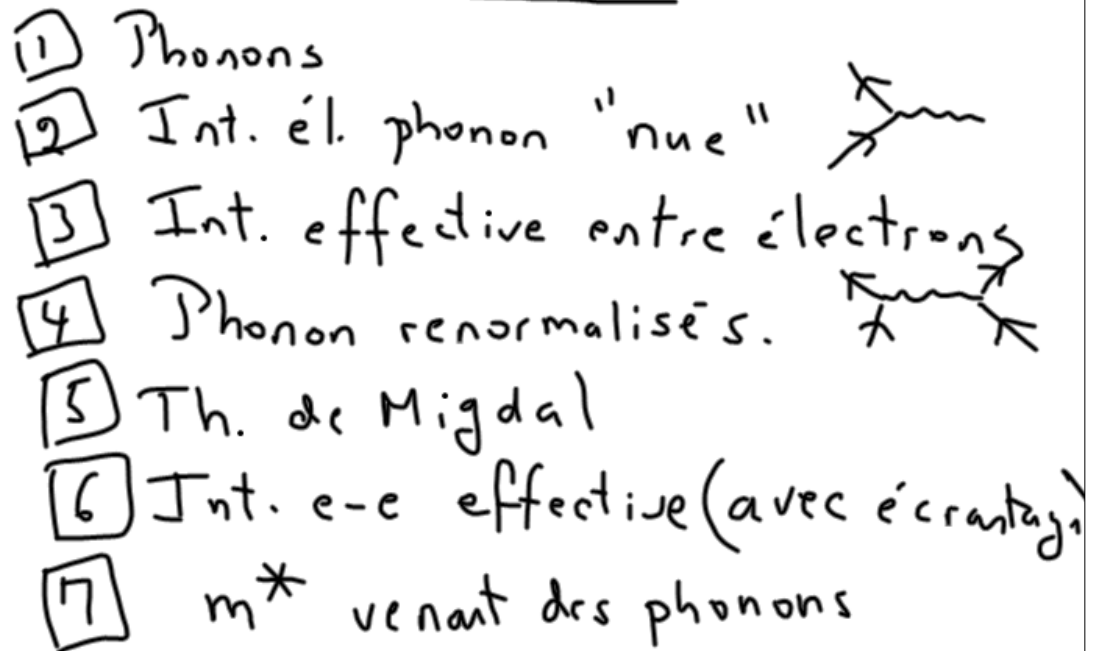 1 Phonons
2 Int. él. phonon "nue"
3 Int. effective entre électrons
4 Phonon renormalisés.
5 Th. de Migdal
6 Int. e-e effective (avec écrantage)
7 m* venant des phonons